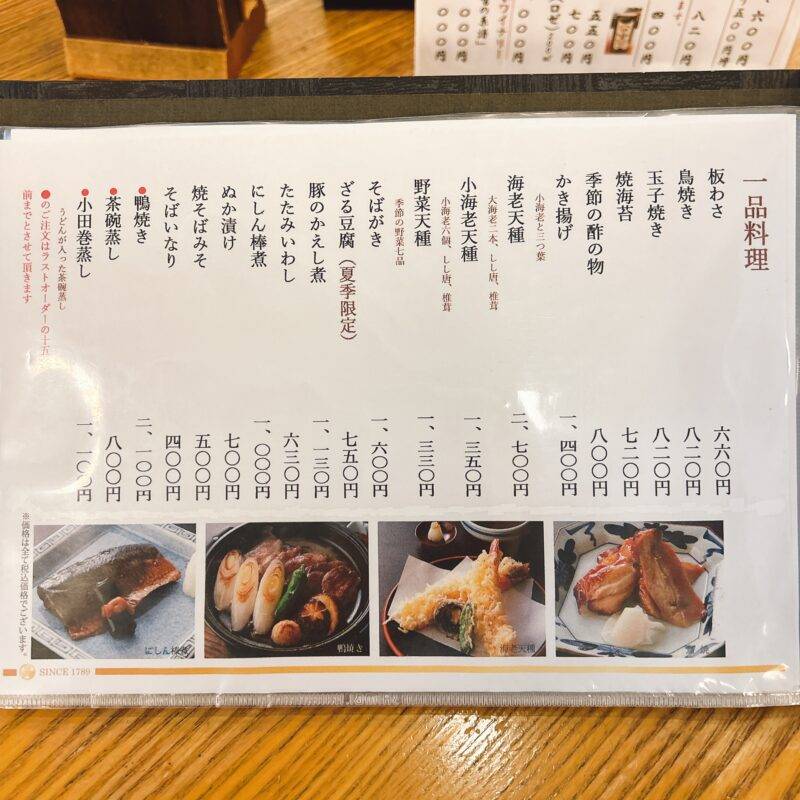 一品料理
板わさ 六六〇円
鳥焼き 八二〇円
玉子焼き 八二〇円
焼海苔 七二〇円
季節の酢の物 八〇〇円
かき揚げ 一、四〇〇円
小海老と三つ葉
海老天種 二、七〇〇円
大海老二本、しし唐、椎茸
小海老天種 一、三五〇円
小海老六個、しし唐、椎茸
野菜天種 一、三三〇円
季節の野菜七品
そばがき 一、六〇〇円
ざる豆腐(夏季限定) 七五〇円
豚のかえし煮 一、一三〇円
たたみいわし 六三〇円
にしん棒煮 一、〇〇〇円
ぬか漬け 七〇〇円
焼そばみそ 五〇〇円
そばいなり 四〇〇円
●鴨焼き 二、一〇〇円
●茶碗蒸し 八〇〇円
●小田巻蒸し 一、一〇〇円
うどんが入った茶碗蒸し
●のご注文はラストオーダーの十五
前までとさせて頂きます
※価格は全て税込価格でございます。
にしん棒煮
鴨焼き
海老天種
焼
SINCE 1789